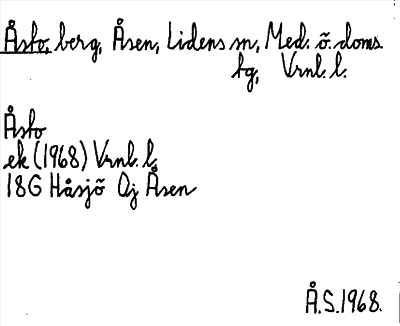 Åsbo, berg, Åsen, Lidens sn, Med. ö. doms.
tg, Vrnl. l.
Åsbo
ek (1968) Vrnl. l.
18G Håsjö Oj Åsen
Å.S. 1968.